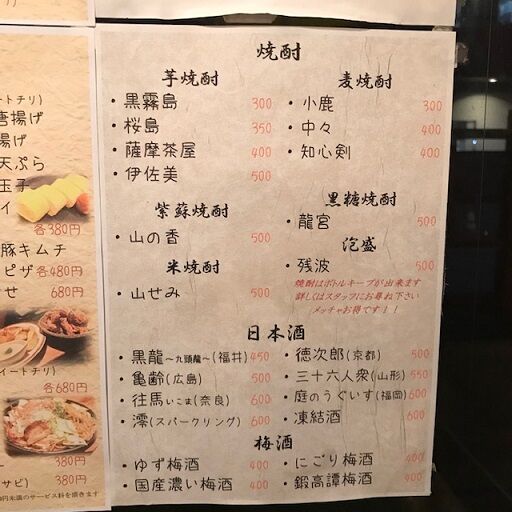 ートチリ)
唐揚げ
揚げ
天ぷら
玉子
イ
各380円
豚キムチ
ピザ 各480円
せ 680円
イートチリ)
各680円
380円
サビ) 380円
0円未満のサービス料を頂きます
焼酎
芋焼酎
・黒霧島 300
・桜島 350
・薩摩茶屋 400
・伊佐美 500
紫蘇焼酎
・山の香 500
米焼酎
・山せみ 500
麦焼酎
・小鹿 300
・中々 400
・知心剣 400
黒糖焼酎
・龍宮 500
泡盛
・残波 500
焼酎はボトルキープが出来ます
詳しくはスタッフにお尋ね下さい
メッチャお得です!!
日本酒
・黒龍~九頭龍~(福井) 450
・亀齢(広島) 500
・往馬いこま(奈良) 600
・澪(スパークリング) 600
・徳次郎(京都) 500
・三十六人衆(山形) 550
・庭のうぐいす(福岡) 600
・凍結酒 600
梅酒
・ゆず梅酒 400
・国産濃い梅酒 400
・にごり梅酒 400
・鍛高譚梅酒 400